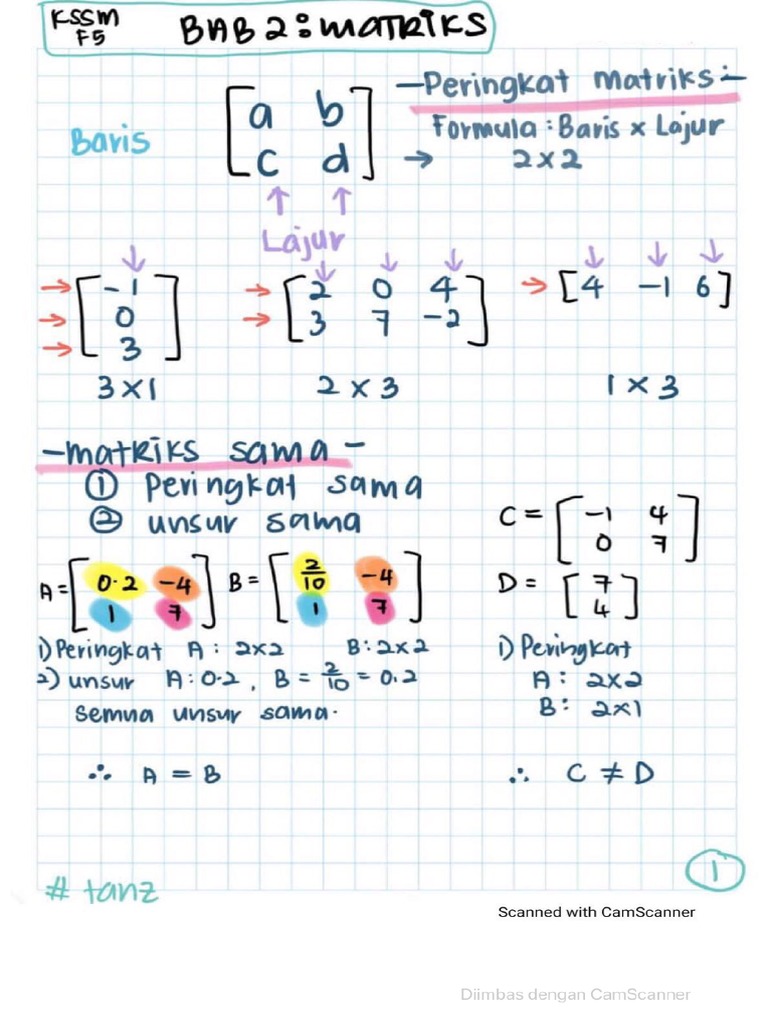 KSSM
F5
BAB 2: MATRIKS
-Peringkat matriks:-
[a b
c d]
Baris
Formula: Baris x Lajur
→ 2x2
↑ ↑
Lajur
→ → → [-1
0
3]
→ → [2 0 4
3 7 -2]
→ [4 -1 6]
3x1
2 x 3
1 x 3
-matriks sama-
① Peringkat sama
② unsur sama
A = [0.2 -4
1 7]
B = [2/10 -4
1 7]
1) Peringkat A: 2x2 B: 2x2
2) unsur A: 0.2, B = 2/10 = 0.2
semua unsur sama.
∴ A = B
C = [-1 4
0 7]
D = [7
4]
1) Peringkat
A: 2x2
B: 2x1
∴ C ≠ D
1
# tanz
Scanned with CamScanner
Diimbas dengan CamScanner